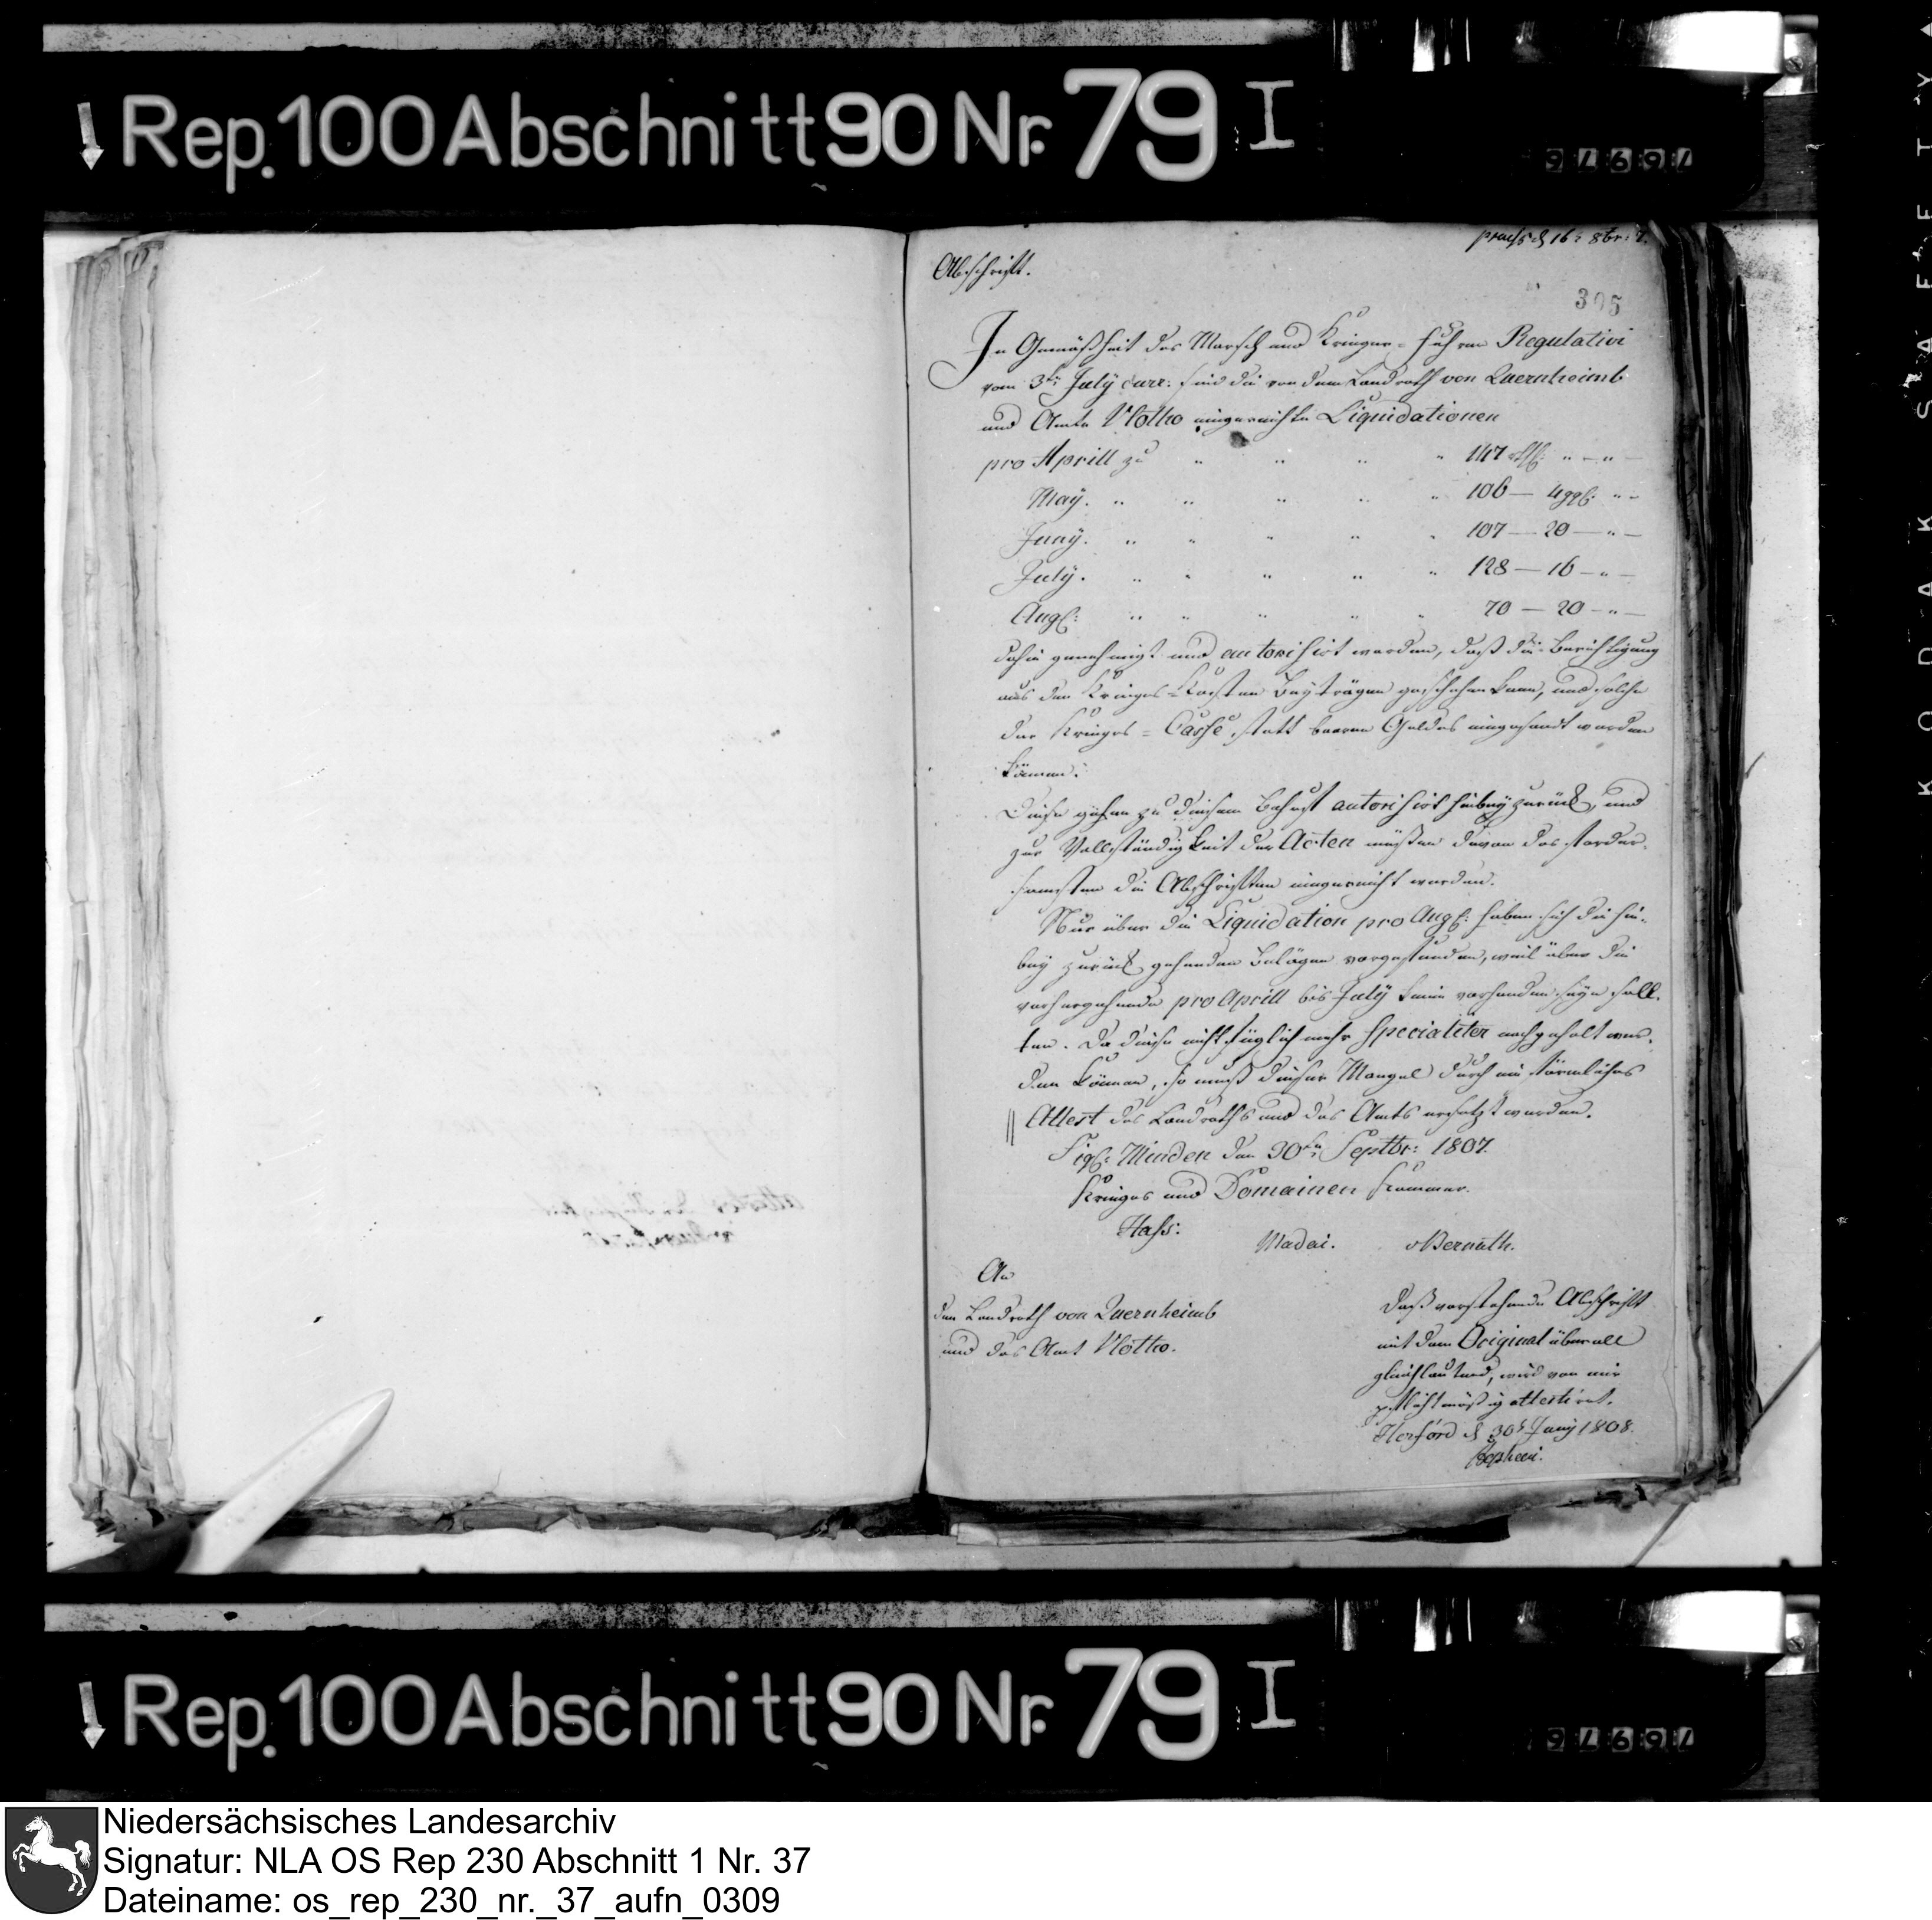 Rep. 100 Abschnitt 90 Nr. 79 I
praes d 16t 8br: 7.
Abschrift.
305
In Gemäßheit des Marsch und Krieges-Fuhren Regulativi
vom 3ten July curr: sind die von dem Landrath von Quernheimb
und Amte Vlotho eingereichte Liquidationen
pro Aprill zu " " " " 147 rthl: " — " —
May. " " " " " 106 — 4 ggl: " "
Juny. " " " " " 107 — 20 — " —
July. " " " " " 128 — 16 — " —
Augl: " " " " " 70 — 20 — " —
dahin genehmigt und autorisirt worden, daß die Berichtigung
aus den Krieges-Kosten Beyträgen geschehen kann, und solche
der Krieges-Casse statt baaren Geldes eingesandt werden
können.
Diese gehen zu diesem Behuf autorisirt hiebey zurück, und
zur Vollständigkeit der Acten müßen davon des forder-
samsten die Abschriften eingereicht werden.
Nur über die Liquidation pro Augl: haben sich die hie-
bey zurück gehenden Belägen vorgefunden, weil über die
vorhergehende pro Aprill bis July keine vorhanden seyn soll-
ten. Da diese nicht füglich mehr specialiter nachgeholt wer-
den können, so muß dieser Mangel durch ein förmliches
Attest des Landraths und des Amts ersetzt werden.
Sigl: Minden den 30ten Septbr: 1807.
Krieges und Domainen Kammer.
Hass: Madai. vBernuth.
An
den Landrath von Quernheimb
und das Amt Vlotho.
Daß vorstehende Abschrift
mit dem Original überall
gleichlautend, wird von mir
pflichtmäßig attestiret.
Herford d 30t Juny 1808.
KODAK SAFETY
Rep. 100 Abschnitt 90 Nr. 79 I
Niedersächsisches Landesarchiv
Signatur: NLA OS Rep 230 Abschnitt 1 Nr. 37
Dateiname: os_rep_230_nr._37_aufn_0309